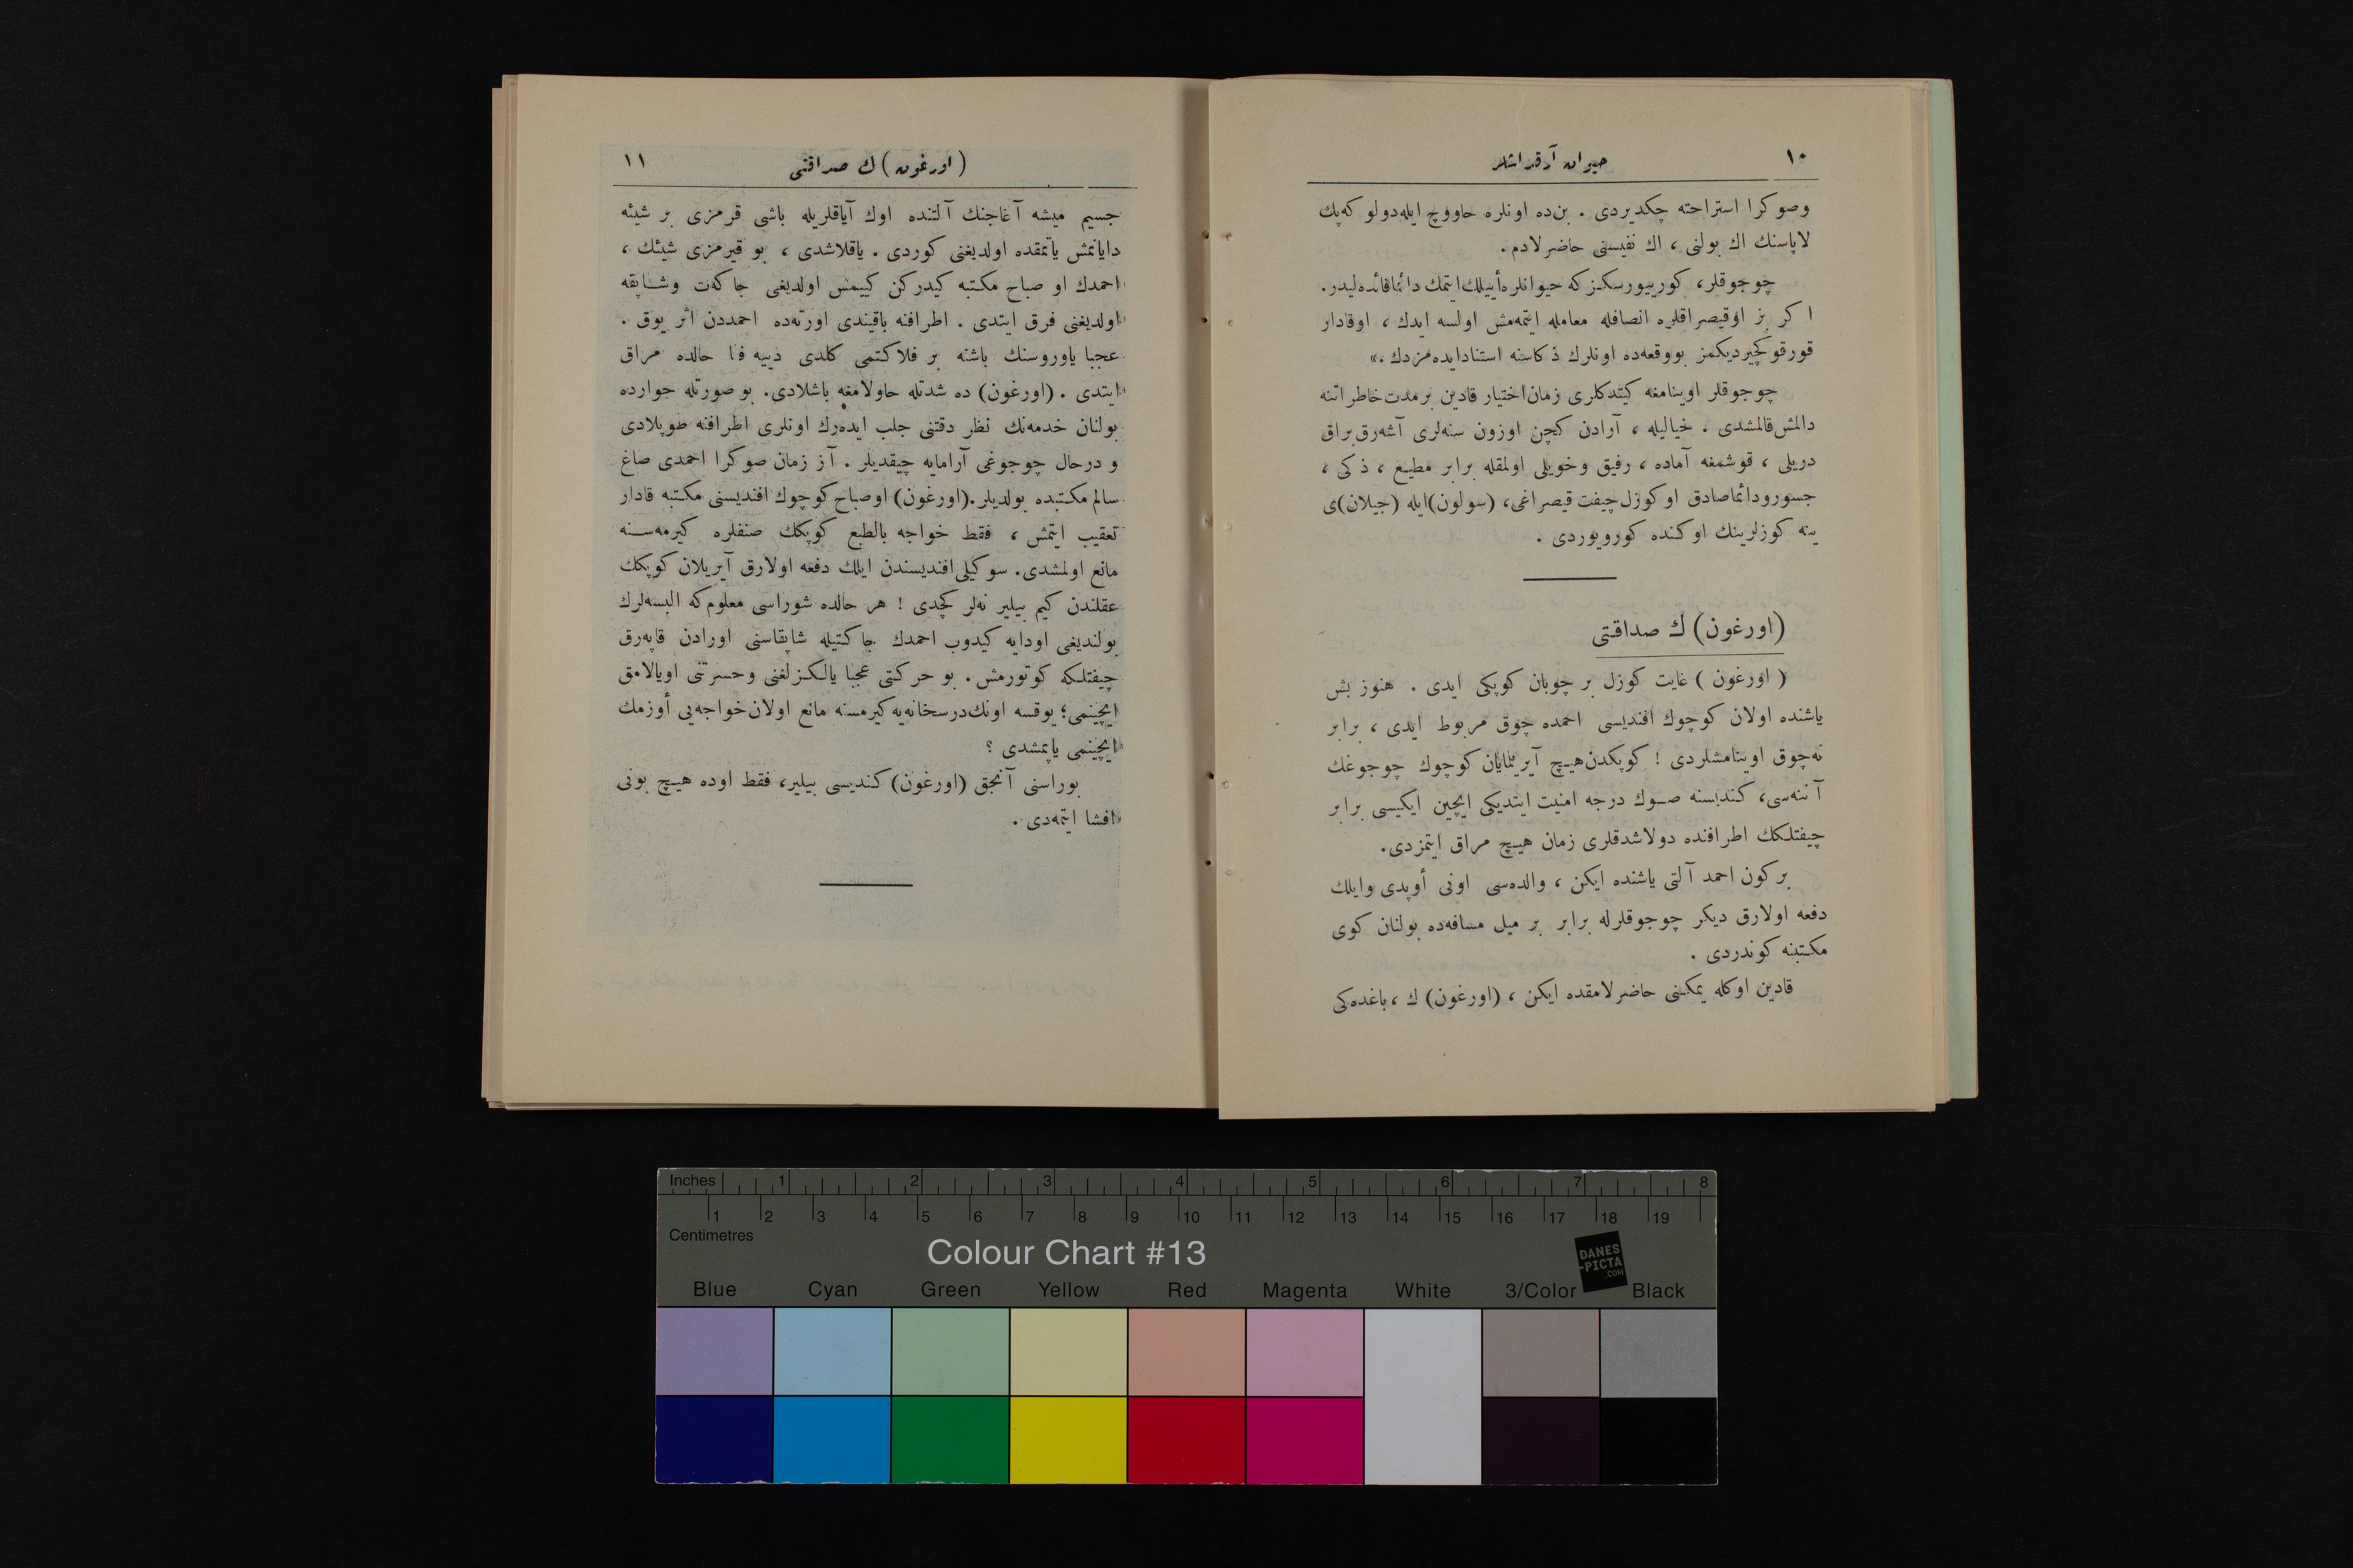 ١٠
حيوان آرقداشلر
وصوكرا استراحته چكديردى . بن‌ده اونلره حاووچ ايله‌دولو كه‌پك
لاپاسنك اك بولنى ، اك نفيسنى حاضرلادم .
چوجوقلر، كورييورسكز كه حيوانلره‌أييلك‌ايتمك دائمافائده‌ليدر.
اكر بز اوقيصراقلره انصافله معامله ايتمه‌مش اولسه ايدك ، اوقادار
قورقو كچيرديكمز بووقعه‌ده اونلرك ذكاسنه استنادايده‌مزدك .»
چوجوقلر اوينامغه كيتدكلرى زمان‌اختيار قادين برمدت‌خاطراتنه
دالمش‌قالمشدى . خياليله ، آرادن كچن اوزون سنه‌لرى آشه‌رق‌براق
دريلى ، قوشمغه آماده ، رفيق وخويلى اولمقله برابر مطيع ، ذكى ،
جسورودائماصادق او كوزل‌چيفت قيصراغى، (سولون)ايله (جيلان)ى
ينه كوزلرينك اوكنده كورويوردى .
(اورغون) ك صداقتى
( اورغون ) غايت كوزل بر چوبان كوپكى ايدى . هنوز بش
ياشنده اولان كوچوك افنديسى احمده چوق مربوط ايدى ، برابر
نه‌چوق اوينامشلردى ! كوپكدن‌هيچ آيريلمايان كوچوك چوجوغك
آننه‌سى، كنديسنه صوك درجه امنيت ايتديكى ايچين ايكيسى برابر
چيفتلكك اطرافنده دولاشدقلرى زمان هيچ مراق ايتمزدى.
بركون احمد آلتى ياشنده ايكن ، والده‌سى اونى أوپدى وايلك
دفعه اولارق ديكر چوجوقلرله برابر بر ميل مسافه‌ده بولنان كوى
مكتبنه كوندردى .
قادين اوكله يمكنى حاضرلامقده ايكن ، (اورغون) ك ،باغده‌كى
(اورغون) ك صداقتى
١١
جسيم ميشه آغاجنك آلتنده اوك آياقلريله باشى قرمزى بر شيئه
دايانمش ياتمقده اولديغنى كوردى . ياقلاشدى ، بو قيرمزى شيئك ،
احمدك او صباح مكتبه كيدركن كييمش اولديغى جاكه‌ت وشاپقه
اولديغنى فرق ايتدى . اطرافنه باقيندى اورته‌ده احمددن اثر يوق .
عجبا ياوروسنك باشنه بر فلاكتمى كلدى دييه فنا حالده مراق
ايتدى . (اورغون) ده شدتله حاولامغه باشلادى. بو صورتله جوارده
بولنان خدمه‌نك نظر دقتنى جلب ايده‌رك اونلرى اطرافنه طوپلادى
و درحال چوجوغى آرامايه چيقديلر . آز زمان صوكرا احمدى صاغ
سالم مكتبده بولديلر.(اورغون) اوصباح كوچوك افنديسنى مكتبه قادار
تعقيب ايتمش ، فقط خواجه بالطبع كوپكك صنفلره كيرمه‌سنه
مانع اولمشدى. سوكيلى‌افنديسندن ايلك دفعه اولارق آيريلان كوپكك
عقلندن كيم بيلير نه‌لر كچدى ! هر حالده شوراسى معلوم‌كه البسه‌لرك
بولنديغى اودايه كيدوب احمدك جاكتيله شاپقاسنى اورادن قاپه‌رق
چيفتلكه كوتورمش. بو حركتى عجبا يالكزلغنى وحسرتنى اويالامق
ايچينمى؛ يوقسه اونك‌درسخانه‌يه‌كيرمسنه مانع اولان‌خواجه‌يى أوزمك
ايچينمى ياپمشدى ؟
بوراسنى آنجق (اورغون) كنديسى بيلير، فقط اوده هيچ بونى
افشا ايتمه‌دى .
Inches 1 2 3 4 5 6 7 8
1 2 3 4 5 6 7 8 9 10 11 12 13 14 15 16 17 18 19
Centimetres
Colour Chart #13
DANES
-PICTA
.COM
Blue Cyan Green Yellow Red Magenta White 3/Color Black